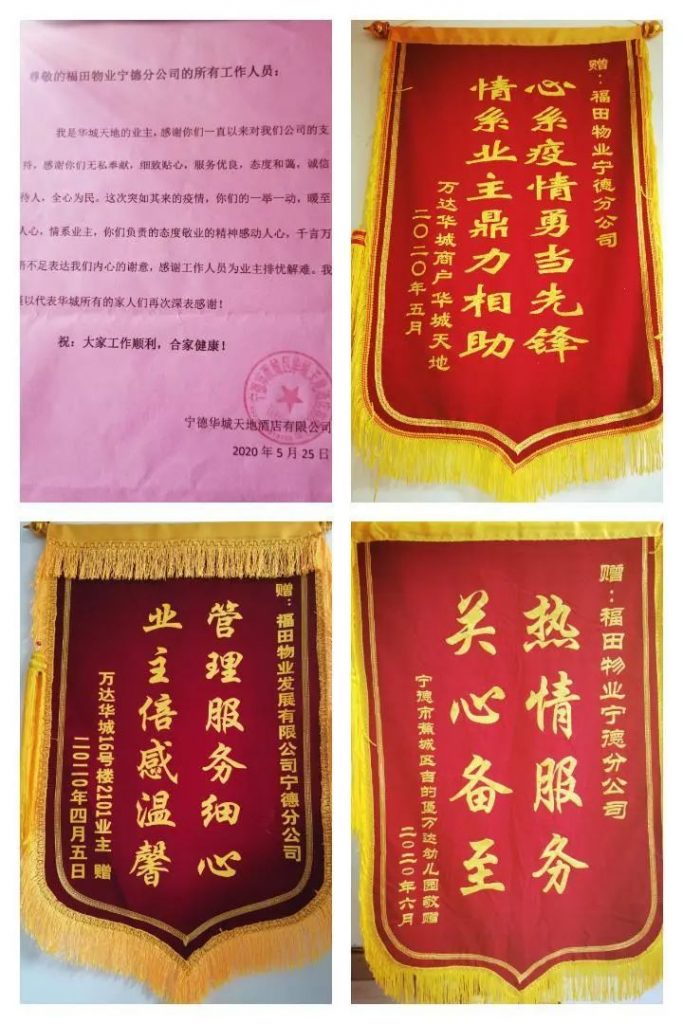 尊敬的福田物业宁德分公司的所有工作人员：
我是华城天地的业主，感谢你们一直以来对我们公司的支
持，感谢你们无私奉献，细致贴心，服务优良，态度和蔼，诚信
待人，全心为民。这次突如其来的疫情，你们的一举一动，暖至
人心，情系业主，你们负责的态度敬业的精神感动人心，千言万
不足表达我们内心的谢意，感谢工作人员为业主排忧解难。我
以代表华城所有的家人们再次深表感谢！
祝：大家工作顺利，合家健康！
宁德华城天地酒店有限公司
2020年5月25日
赠：福田物业宁德分公司
心系疫情勇当先锋
情系业主鼎力相助
万达华城商户 华城天地
二〇二〇年五月
赠：福田物业发展有限公司宁德分公司
管理服务细心
业主倍感温馨
万达华城16号楼2101业主 赠
二〇二〇年四月五日
赠：福田物业宁德分公司
热情服务
关心备至
宁德市蕉城区吉的堡万达幼儿园敬赠
二〇二〇年六月